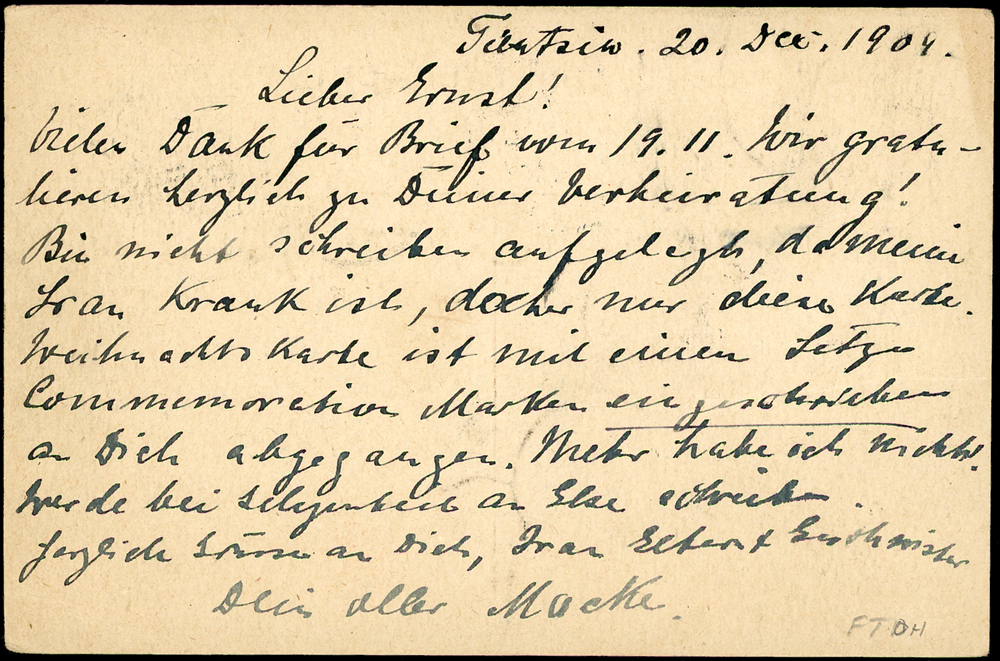 Tientsin. 20. Dec. 1904.
Lieber Ernst!
Vielen Dank für Brief vom 19. 11. Wir gratu-
lieren herzlich zu Deiner Verheiratung!
Bin nicht schreiben aufgelegt, da meine
Frau Krank ist, daher nur diese Karte.
Weihnachts Karte ist mit einem Satze
Commemoration Marken eingeschrieben
an Dich abgegangen. Mehr habe ich nicht!
Werde bei Gelegenheit an Else schreiben.
Herzliche Grüsse an Dich, Frau Eltern & Geschwister
Dein alter Macke.
FT DH